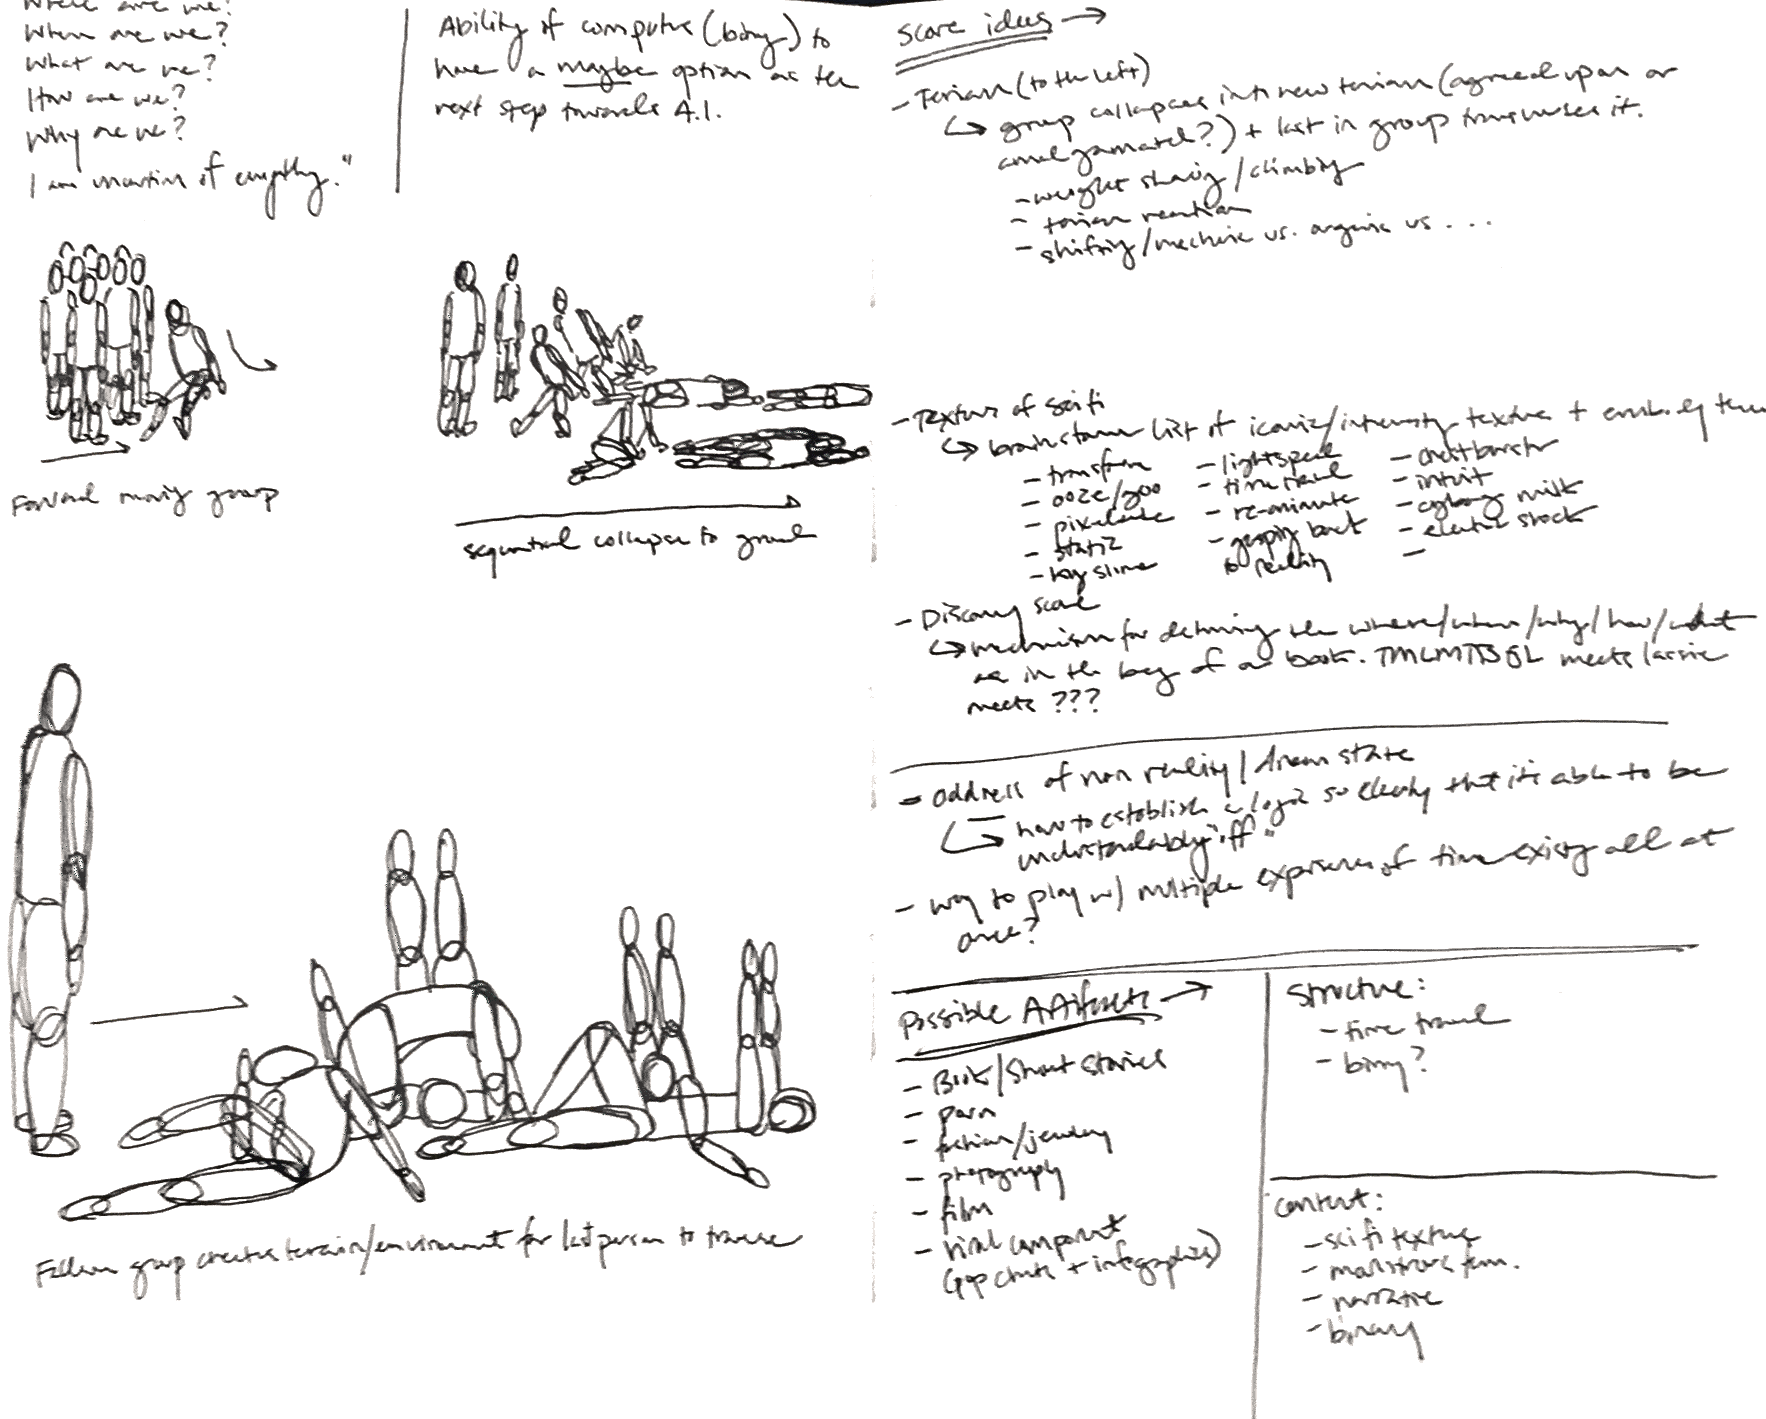 Where are we?
When are we?
What are we?
How are we?
Why are we?
I am machine of empathy."
Ability of computer (binary) to
have a maybe option as the
next step towards A.I.
Forward moving group
sequential collapse to ground
Fallen group creates terrain/environment for last person to traverse
Score ideas →
- Terrian (to the left)
↳ group collapses into new terrian (agreed upon or
amalgamated?) + last in group transverses it.
- weight sharing/climbing
- terrian reaction
- shifting/machine vs. organic vs ...
- Texture of Sci fi
↳ brainstorm list of iconic/interesting textures + embody them
- transform
- ooze/goo
- pixelate
- static
- slime
- lightspeed
- time travel
- re-animate
- gasping back
to reality
- chestburster
- intuit
- cyborg milk
- electric shock
-
- Discovery score
↳ mechanism for defining the where/when/why/how/what
as in the beg of a book. TMLMTBGL meets lassie
meets ???
- address of non reality/dream state
↳ how to establish a logic so clearly that it's able to be
understandably "off"
- way to play w/ multiple experiences of time existing all at
once?
Possible Artifacts →
- Book/Short Stories
- porn
- fashion/jewelry
- photography
- film
- viral component
(gap charts + infographics)
Structure:
- time travel
- binary?
Content:
- scifi texture
- monstrous fem.
- narrative
- binary